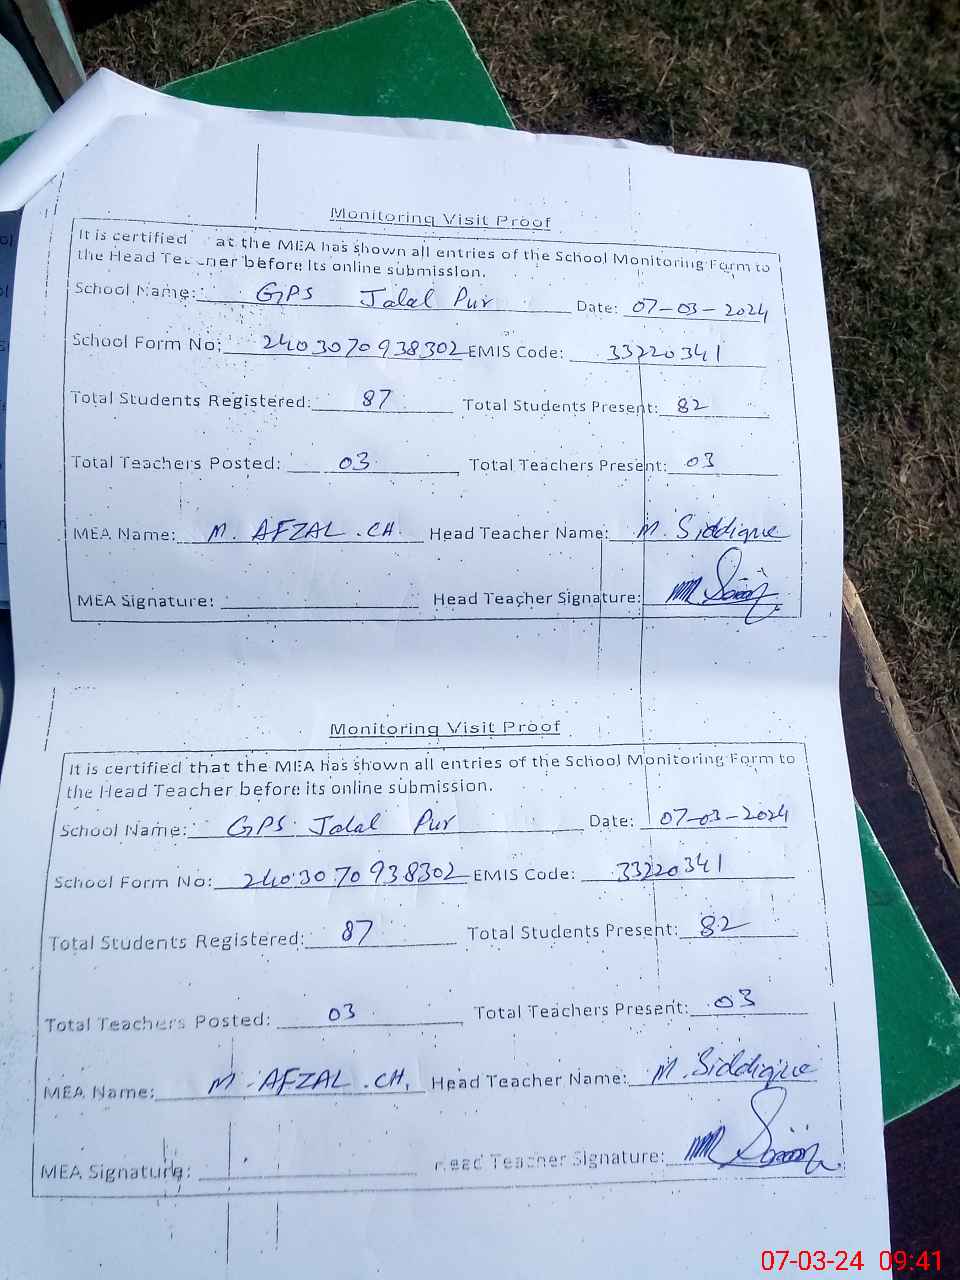 Monitoring Visit Proof
It is certified at the MEA has shown all entries of the School Monitoring Form to
the Head Teacher before its online submission.
School Name: GPS Jalal Pur Date: 07-03-2024
School Form No: 2403070938302 EMIS Code: 33220341
Total Students Registered: 87 Total Students Present: 82
Total Teachers Posted: 03 Total Teachers Present: 03
MEA Name: M. AFZAL. CH. Head Teacher Name: M. Siddique
MEA Signature: Head Teacher Signature:
Monitoring Visit Proof
It is certified that the MEA has shown all entries of the School Monitoring Form to
the Head Teacher before its online submission.
School Name: GPS Jalal Pur Date: 07-03-2024
School Form No: 2403070938302 EMIS Code: 33220341
Total Students Registered: 87 Total Students Present: 82
Total Teachers Posted: 03 Total Teachers Present: 03
MEA Name: M. AFZAL. CH. Head Teacher Name: M. Siddique
MEA Signature: Head Teacher Signature:
07-03-24 09:41